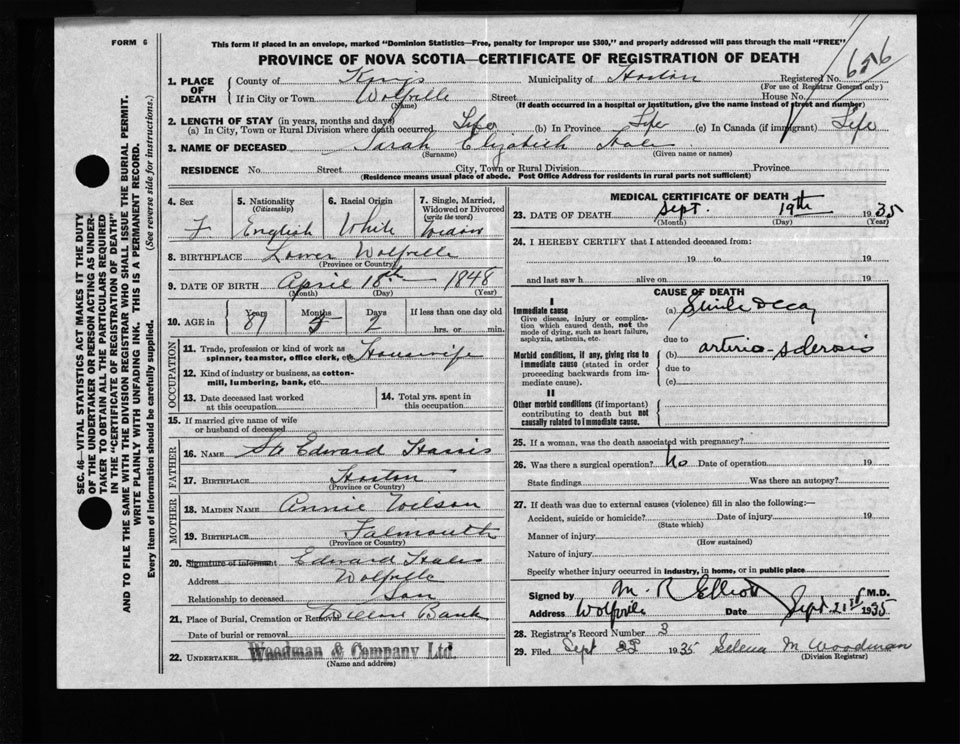 FORM 6
This form if placed in an envelope, marked "Dominion Statistics—Free, penalty for improper use $300," and properly addressed will pass through the mail "FREE"
PROVINCE OF NOVA SCOTIA—CERTIFICATE OF REGISTRATION OF DEATH
656
1. PLACE OF DEATH
County of Kings Municipality of Horton Registered No.
(For use of Registrar General only)
If in City or Town Wolfville Street House No.
(Name) (If death occurred in a hospital or institution, give the name instead of street and number)
2. LENGTH OF STAY (in years, months and days)
(a) In City, Town or Rural Division where death occurred Life (b) In Province Life (c) In Canada (if immigrant) Life
3. NAME OF DECEASED Sarah Elizabeth
(Surname) (Given name or names)
RESIDENCE No. Street City, Town or Rural Division Province
(Residence means usual place of abode. Post Office Address for residents in rural parts not sufficient)
4. Sex F
5. Nationality (Citizenship) English
6. Racial Origin White
7. Single, Married, Widowed or Divorced (write the word) Widow
8. BIRTHPLACE Lower Wolfville
(Province or Country)
9. DATE OF BIRTH April 18th 1848
(Month) (Day) (Year)
10. AGE in Years Months Days If less than one day old
87 5 2 hrs. or min.
OCCUPATION
11. Trade, profession or kind of work as spinner, teamster, office clerk, etc. Housewife
12. Kind of industry or business, as cotton-mill, lumbering, bank, etc.
13. Date deceased last worked at this occupation
14. Total yrs. spent in this occupation
15. If married give name of wife or husband of deceased
FATHER
16. Name Edward Harris
17. BIRTHPLACE Horton
(Province or Country)
MOTHER
18. MAIDEN NAME Annie Wilson
19. BIRTHPLACE Falmouth
(Province or Country)
20. Signature of informant Edward
Address Wolfville
Relationship to deceased Son
21. Place of Burial, Cremation or Removal Bank
Date of burial or removal
22. UNDERTAKER Woodman & Company Ltd.
(Name and address)
MEDICAL CERTIFICATE OF DEATH
23. DATE OF DEATH Sept. 19th 1935
(Month) (Day) (Year)
24. I HEREBY CERTIFY that I attended deceased from:
19 to 19
and last saw h alive on 19
CAUSE OF DEATH
I
Immediate cause
Give disease, injury or complication which caused death, not the mode of dying, such as heart failure, asphyxia, asthenia, etc.
(a) Senile Decay
due to
Morbid conditions, if any, giving rise to immediate cause (stated in order proceeding backwards from immediate cause).
(b) arterio-sclerosis
due to
(c)
II
Other morbid conditions (if important) contributing to death but not causally related to immediate cause.
25. If a woman, was the death associated with pregnancy?
26. Was there a surgical operation? No Date of operation 19
State findings Was there an autopsy?
27. If death was due to external causes (violence) fill in also the following:—
Accident, suicide or homicide? Date of injury 19
(State which)
Manner of injury
(How sustained)
Nature of injury
Specify whether injury occurred in industry, in home, or in public place
Signed by M. R Elliott M.D.
Address Wolfville Date Sept 21st 1935
28. Registrar's Record Number 3
29. Filed Sept 1935 Selena M Woodman
(Division Registrar)
SEC. 46—VITAL STATISTICS ACT MAKES IT THE DUTY
OF THE UNDERTAKER OR PERSON ACTING AS UNDER-
TAKER TO OBTAIN ALL THE PARTICULARS REQUIRED
IN THE "CERTIFICATE OF REGISTRATION OF DEATH"
AND TO FILE THE SAME WITH THE DIVISION REGISTRAR WHO SHALL ISSUE THE BURIAL PERMIT.
WRITE PLAINLY WITH UNFADING INK. THIS IS A PERMANENT RECORD.
Every item of information should be carefully supplied. (See reverse side for instructions.)